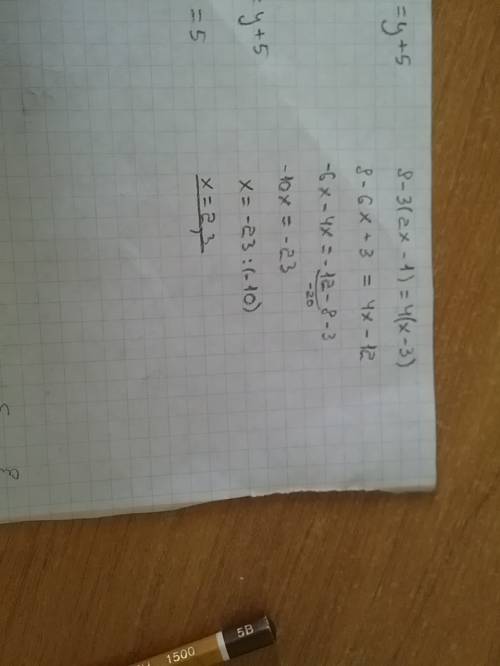 = y + 5
= y + 5
= 5
8 - 3(2x - 1) = 4(x - 3)
8 - 6x + 3 = 4x - 12
-6x - 4x = -12 - 8 - 3
-20
-10x = -23
x = -23 : (-10)
x = 2,3
1500
5B